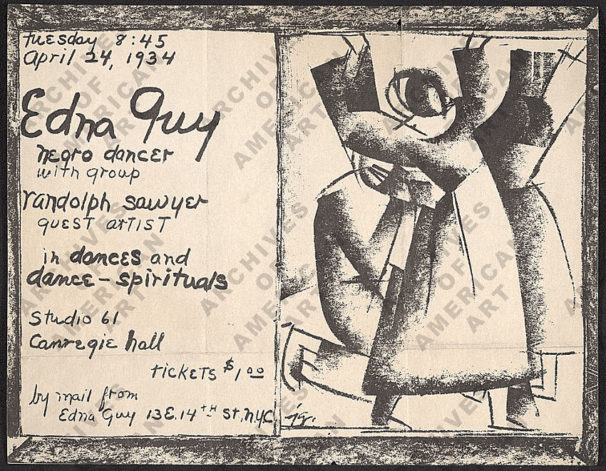 Tuesday 8:45
April 24, 1934
Edna Guy
negro dancer
with group
randolph sawyer
guest artist
in dances and
dance-spirituals
Studio 61
Carnegie hall
tickets $1.00
by mail from
Edna Guy 13 E. 14TH St, NYC
ARCHIVES
OF
AMERICAN
ART